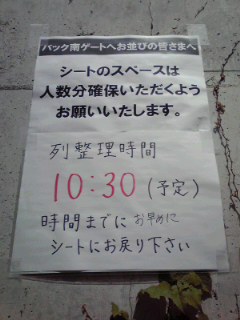 バック南ゲートへお並びの皆さまへ
シートのスペースは
人数分確保いただくよう
お願いいたします。
列整理時間
10:30(予定)
時間までにお早めに
シートにお戻り下さい